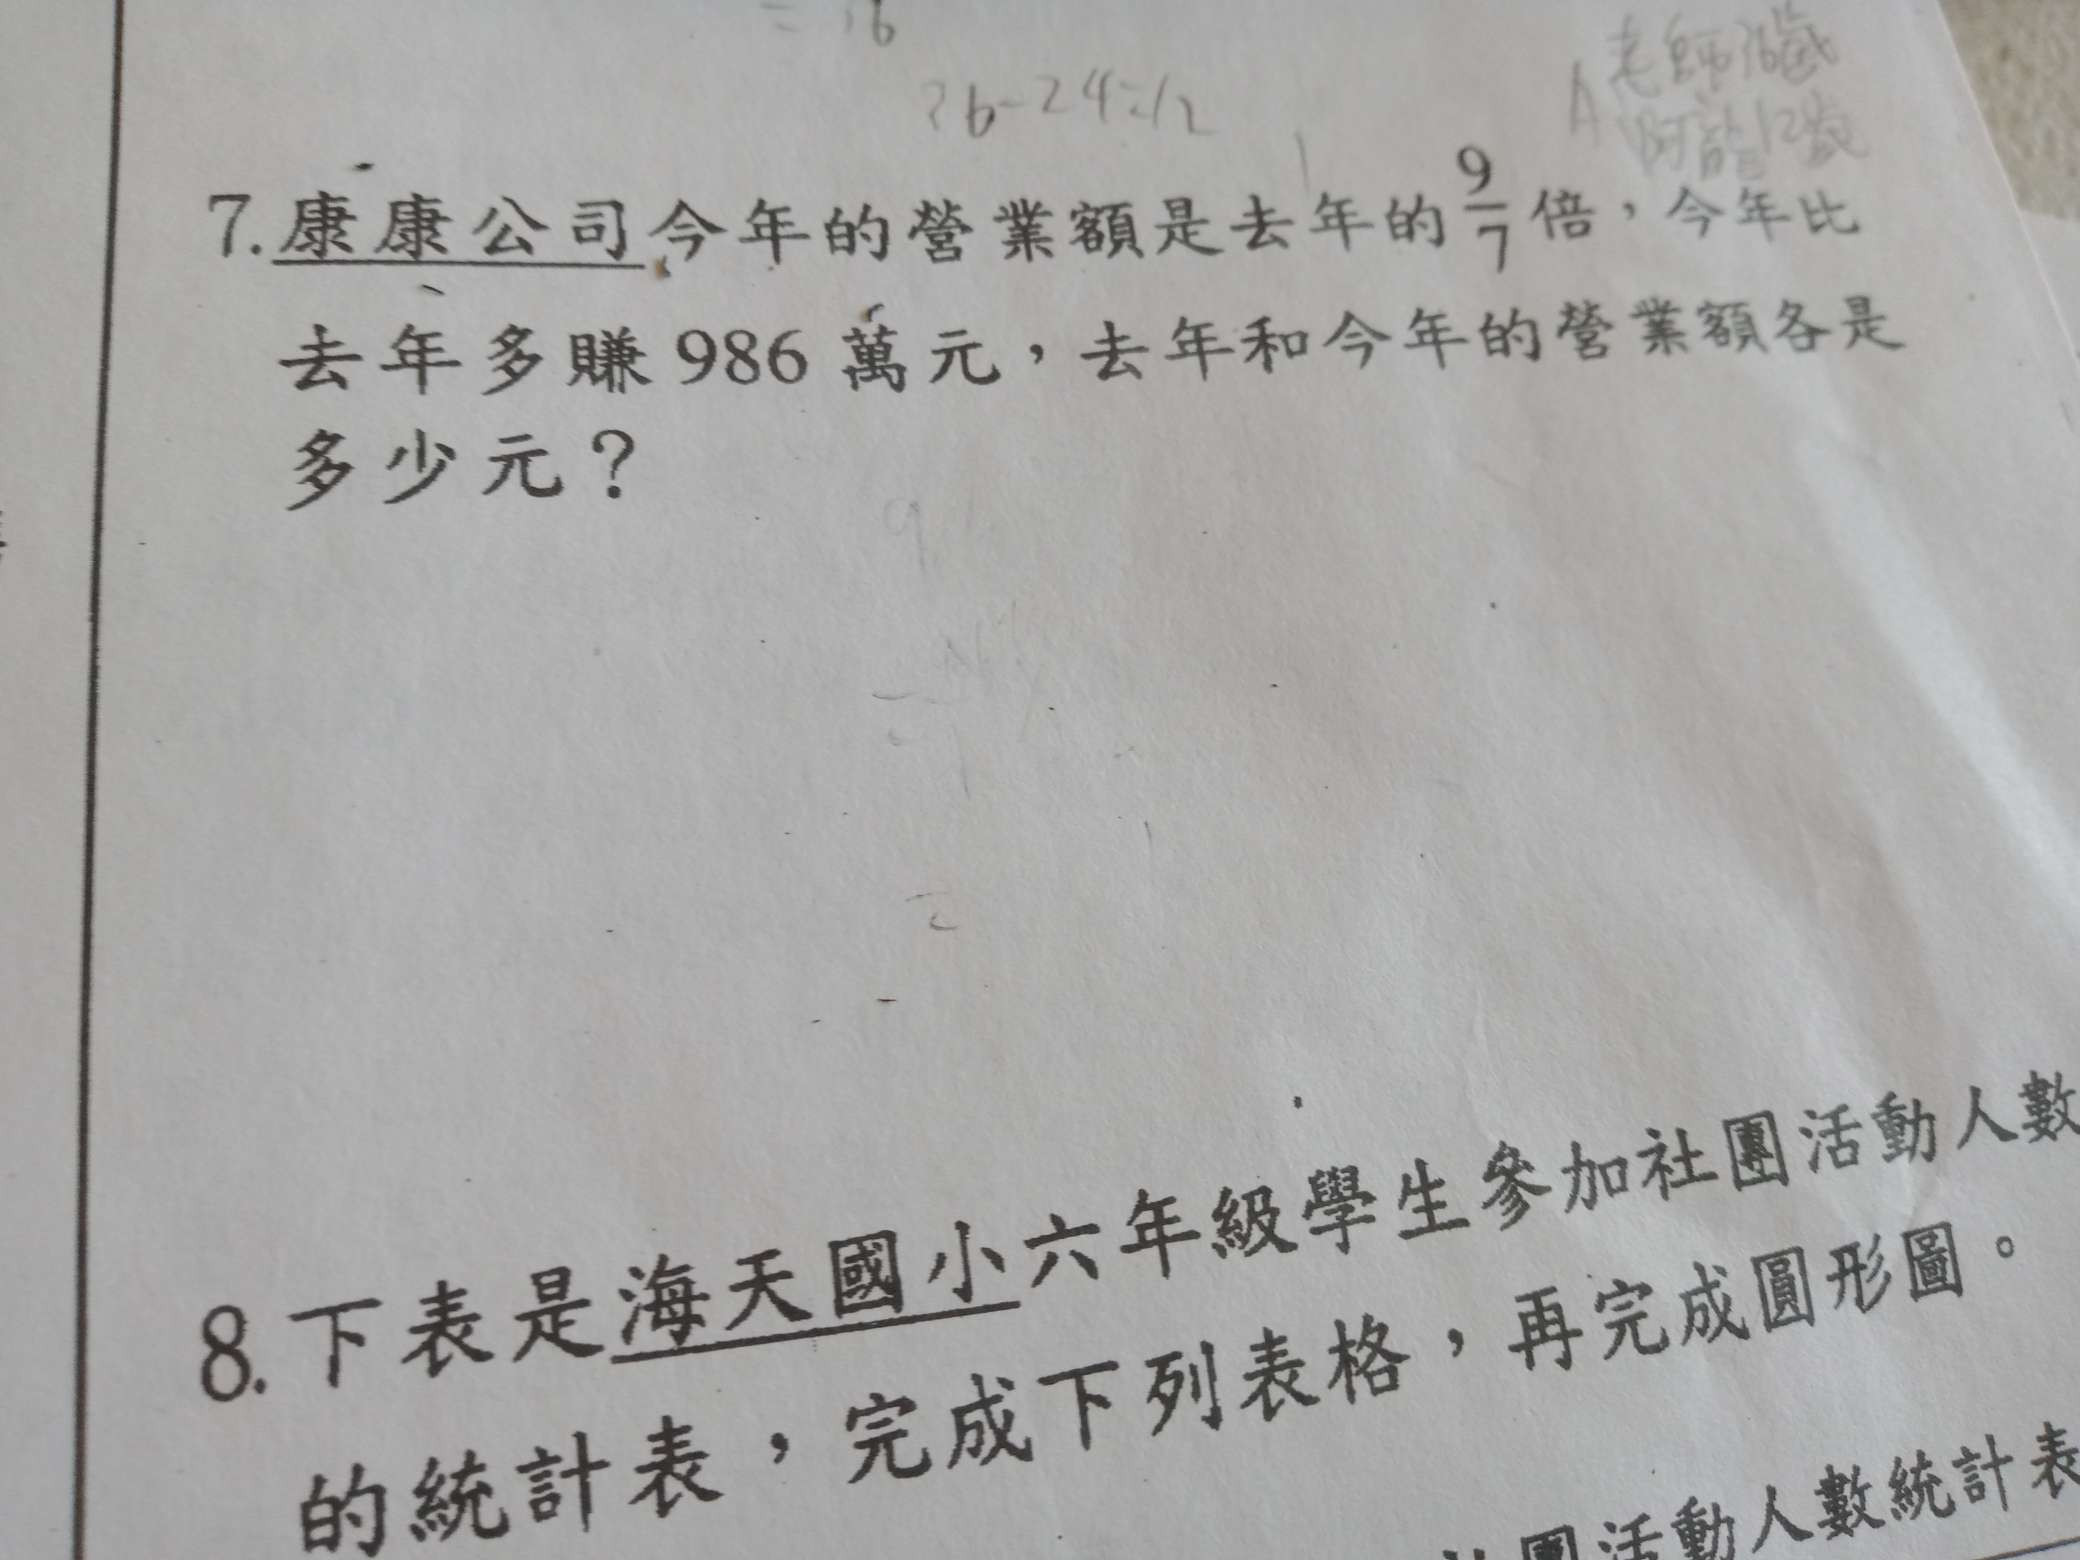 = 36
36-24=12
A 老師36歲
阿龍12歲
7.康康公司今年的營業額是去年的9/7倍，今年比
去年多賺986萬元，去年和今年的營業額各是
多少元？
8.下表是海天國小六年級學生參加社團活動人數
的統計表，完成下列表格，再完成圓形圖。
社團活動人數統計表